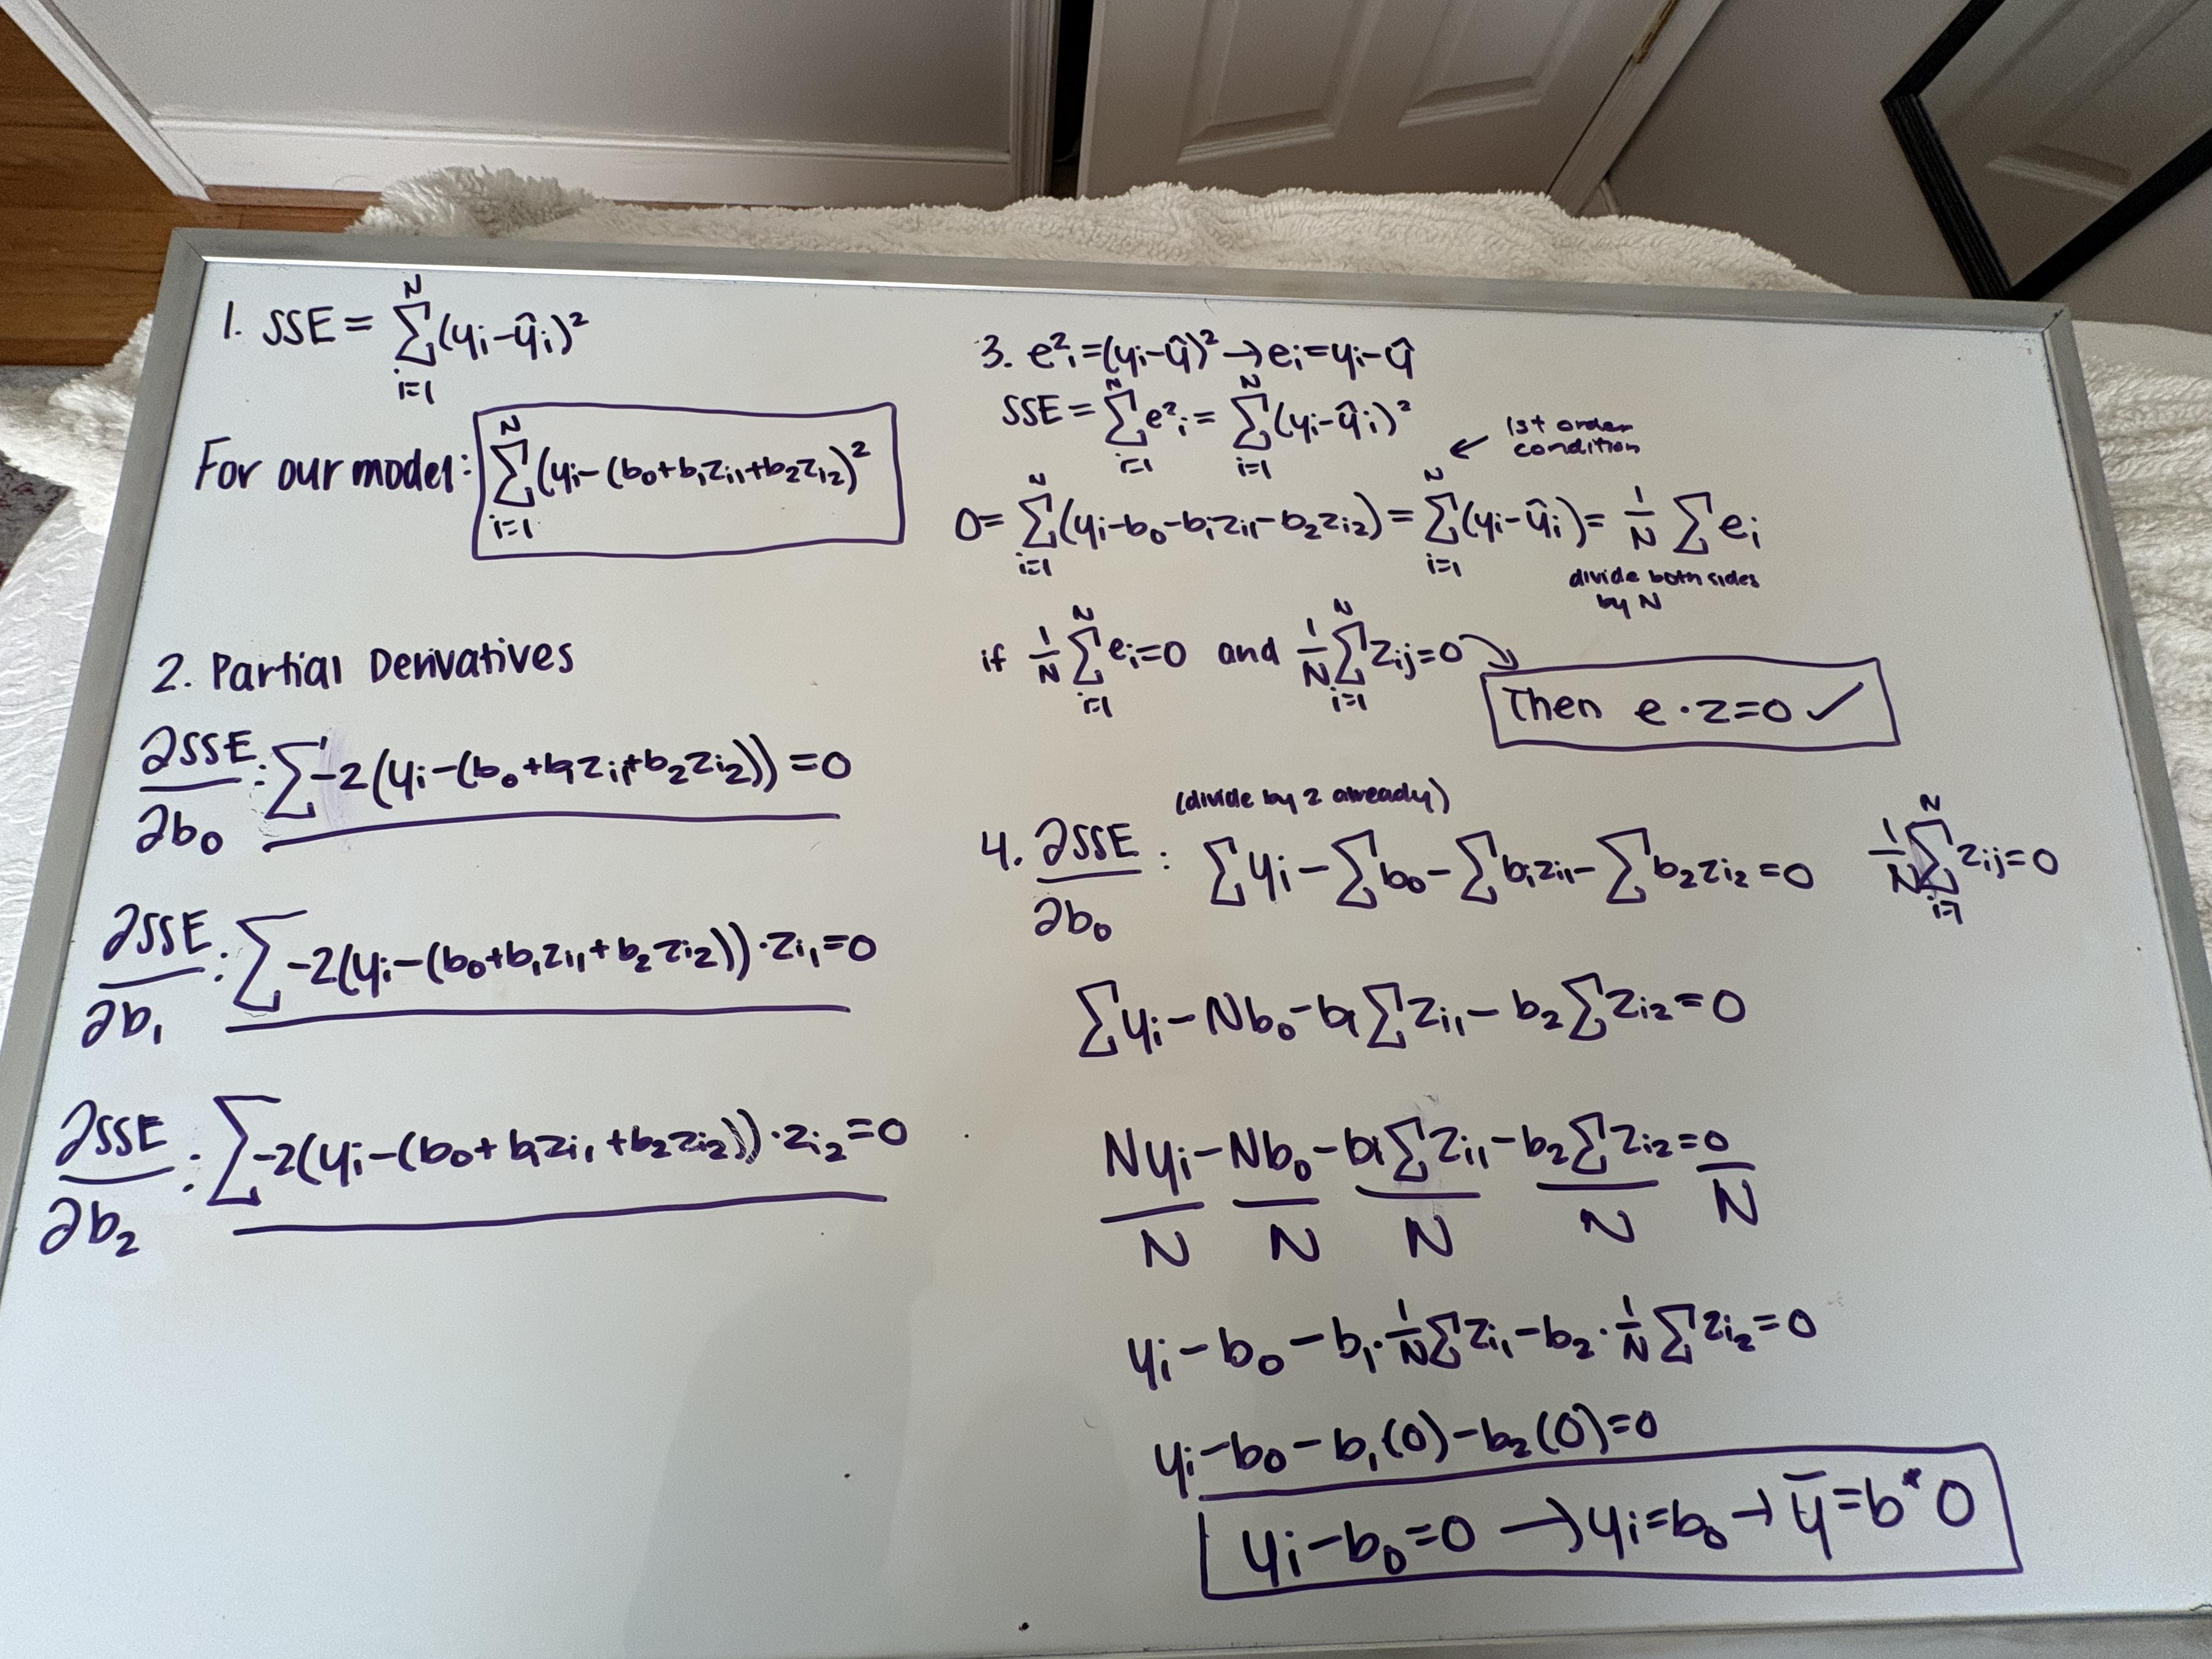 1. SSE = Σ_{i=1}^{N} (yᵢ − ŷᵢ)²
For our model: Σ_{i=1}^{N} (yᵢ − (b₀ + b₁zᵢ₁ + b₂zᵢ₂)²
2. Partial Derivatives
∂SSE/∂b₀ : Σ −2(yᵢ − (b₀ + b₁zᵢ₁ + b₂zᵢ₂)) = 0
∂SSE/∂b₁ : Σ −2(yᵢ − (b₀ + b₁zᵢ₁ + b₂zᵢ₂)) · zᵢ₁ = 0
∂SSE/∂b₂ : Σ −2(yᵢ − (b₀ + b₁zᵢ₁ + b₂zᵢ₂)) · zᵢ₂ = 0
3. eᵢ² = (yᵢ − ŷᵢ)² → eᵢ = yᵢ − ŷ
SSE = Σ_{i=1}^{N} eᵢ² = Σ_{i=1}^{N} (yᵢ − ŷᵢ)²
← 1st order
condition
0 = Σ_{i=1}^{N} (yᵢ − b₀ − b₁zᵢ₁ − b₂zᵢ₂) = Σ_{i=1}^{N} (yᵢ − ŷᵢ) = 1/N Σ eᵢ
divide both sides
by N
if 1/N Σ_{i=1}^{N} eᵢ = 0 and 1/N Σ_{i=1}^{N} zᵢⱼ = 0
Then e · z = 0 ✓
(divide by 2 already)
4. ∂SSE/∂b₀ : Σ yᵢ − Σ b₀ − Σ b₁zᵢ₁ − Σ b₂zᵢ₂ = 0
1/N Σ_{i=1}^{N} zᵢⱼ = 0
Σ yᵢ − Nb₀ − b₁ Σ zᵢ₁ − b₂ Σ zᵢ₂ = 0
Nyᵢ/N − Nb₀/N − b₁ Σ zᵢ₁/N − b₂ Σ zᵢ₂/N = 0/N
yᵢ − b₀ − b₁ · 1/N Σ zᵢ₁ − b₂ · 1/N Σ zᵢ₂ = 0
yᵢ − b₀ − b₁(0) − b₂(0) = 0
yᵢ − b₀ = 0 → yᵢ = b₀ → ȳ = b*0